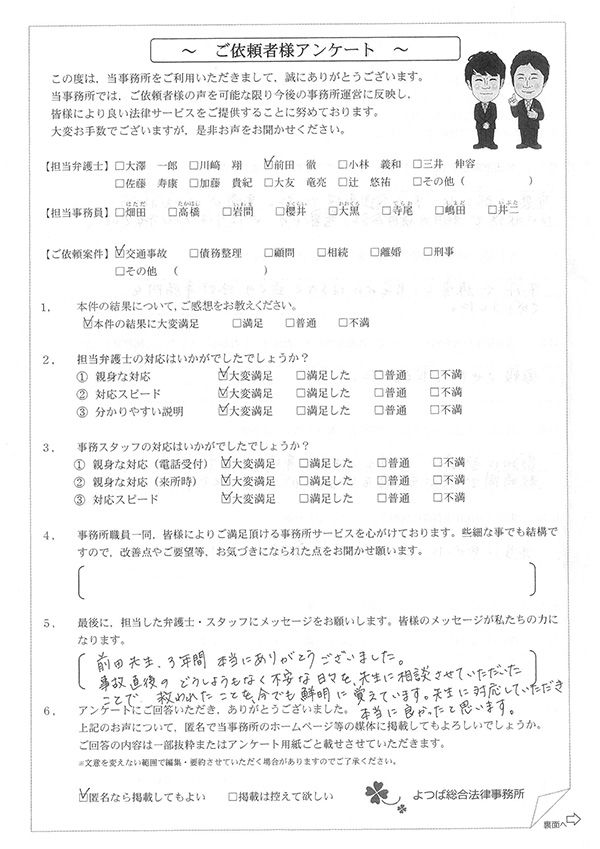 ～ ご依頼者様アンケート ～
この度は、当事務所をご利用いただきまして、誠にありがとうございます。
当事務所では、ご依頼者様の声を可能な限り今後の事務所運営に反映し、
皆様により良い法律サービスをご提供することに努めております。
大変お手数でございますが、是非お声をお聞かせください。
【担当弁護士】 □大澤 一郎 □川﨑 翔 ☑前田 徹 □小林 義和 □三井 伸容
□佐藤 寿康 □加藤 貴紀 □大友 竜亮 □辻 悠祐 □その他（ ）
【担当事務員】 □畑田 □高橋 □岩間 □櫻井 □大黒 □寺尾 □嶋田 □井二
【ご依頼案件】 ☑交通事故 □債務整理 □顧問 □相続 □離婚 □刑事
□その他 （ ）
1． 本件の結果について，ご感想をお教えください。
☑本件の結果に大変満足 □満足 □普通 □不満
2． 担当弁護士の対応はいかがでしたでしょうか？
① 親身な対応 ☑大変満足 □満足した □普通 □不満
② 対応スピード ☑大変満足 □満足した □普通 □不満
③ 分かりやすい説明 ☑大変満足 □満足した □普通 □不満
3． 事務スタッフの対応はいかがでしたでしょうか？
① 親身な対応（電話受付） ☑大変満足 □満足した □普通 □不満
② 親身な対応（来所時） ☑大変満足 □満足した □普通 □不満
③ 対応スピード ☑大変満足 □満足した □普通 □不満
4． 事務所職員一同，皆様によりご満足頂ける事務所サービスを心がけております。些細な事でも結構で
すので，改善点やご要望等，お気づきになられた点をお聞かせ願います。
5． 最後に，担当した弁護士・スタッフにメッセージをお願いします。皆様のメッセージが私たちの力に
なります。
前田先生、3年間 本当にありがとうございました。
事故直後の どうしようもなく不安な日々を、先生に相談させていただいた
ことで 救われたことを今でも鮮明に覚えています。先生に対応していただき
本当に良かったと思います。
6． アンケートにご回答いただき，ありがとうございました。
上記のお声について，匿名で当事務所のホームページ等の媒体に掲載してもよろしいでしょうか。
ご回答の内容は一部抜粋またはアンケート用紙ごと載せさせていただきます。
※文意を変えない範囲で編集・要約させていただく場合がありますのでご了承ください。
☑匿名なら掲載してもよい □掲載は控えて欲しい よつば総合法律事務所
裏面へ